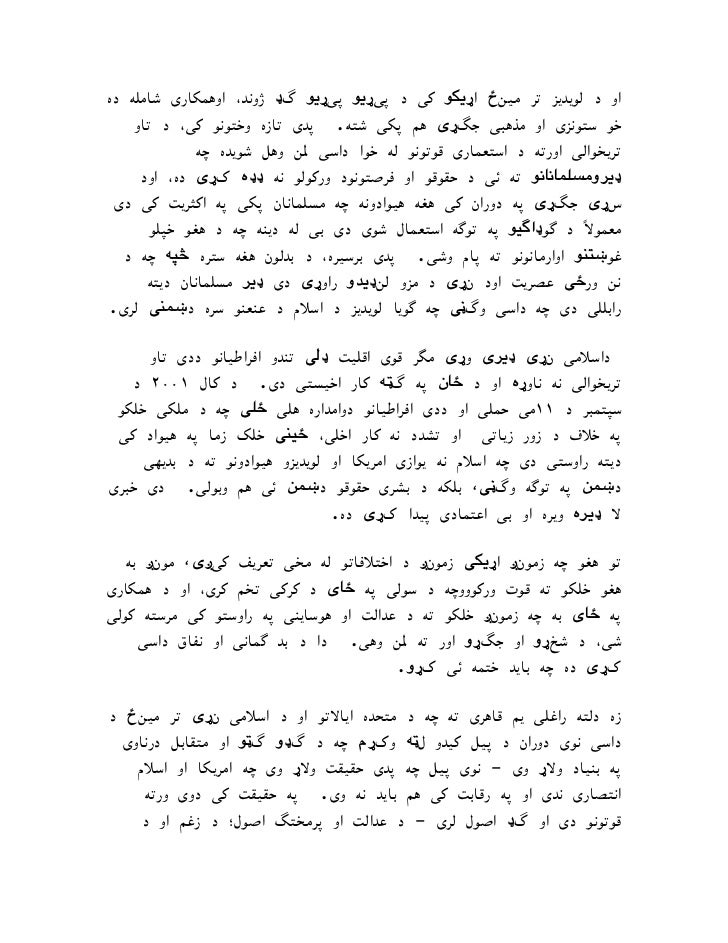 او د لویدیز تر مینځ اړیکو کی د پیړیو پیړیو گډ ژوند، اوهمکاری شامله ده
خو ستونزی او مذهبی جگړی هم پکی شته. پدی تازه وختونو کی، د تاو
تریخوالی اورته د استعماری قوتونو له خوا داسی لمن وهل شویده چه
ډیرومسلمانانو ته ئی د حقوقو او فرصتونود ورکولو نه ډډه کړی ده، اود
سړی جگړی په دوران کی هغه هیوادونه چه مسلمانان پکی په اکثریت کی دی
معمولاً د گوډاگیو په توگه استعمال شوی دی بی له دینه چه د هغو خپلو
غوښتنو اوارمانونو ته پام وشی. پدی برسیره، د بدلون هغه ستره څپه چه د
نن ورځی عصریت اود نړی د مزو لنډیدو راوړی دی ډیر مسلمانان دیته
رابللی دی چه داسی وگڼی چه گویا لویدیز د اسلام د عنعنو سره دښمنی لری.
داسلامی نړی ډیری وړی مگر قوی اقلیت ډلی تندو افراطیانو ددی تاو
تریخوالی نه ناوړه او د ځان په گټه کار اخیستی دی. د کال ۲۰۰۱ د
سپتمبر د ۱۱می حملی او ددی افراطیانو دوامداره هلی ځلی چه د ملکی خلکو
په خلاف د زور زیاتی او تشدد نه کار اخلی، ځینی خلک زما په هیواد کی
دیته راوستی دی چه اسلام نه یوازی امریکا او لویدیزو هیوادونو ته د بدیهی
دښمن په توگه وگڼی، بلکه د بشری حقوقو دښمن ئی هم وبولی. دی خبری
لا ډیره ویره او بی اعتمادی پیدا کړی ده.
تو هغو چه زمونږ اړیکی زمونږ د اختلافاتو له مخی تعریف کیږی، مونږ به
هغو خلکو ته قوت ورکوووچه د سولی په ځای د کرکی تخم کری، او د همکاری
په ځای به چه زمونږ خلکو ته د عدالت او هوساینی په راوستو کی مرسته کولی
شی، د شخړو او جگړو اور ته لمن وهی. دا د بد گمانی او نفاق داسی
کړی ده چه باید ختمه ئی کړو.
زه دلته راغلی یم قاهری ته چه د متحده ایالاتو او د اسلامی نړی تر مینځ د
داسی نوی دوران د پیل کیدو لټه وکړم چه د گډو گټو او متقابل درناوی
په بنیاد ولاړ وی – نوی پیل چه پدی حقیقت ولاړ وی چه امریکا او اسلام
انتصاری ندی او په رقابت کی هم باید نه وی. په حقیقت کی دوی ورته
قوتونو دی او گډ اصول لری – د عدالت او پرمختگ اصول؛ د زغم او د